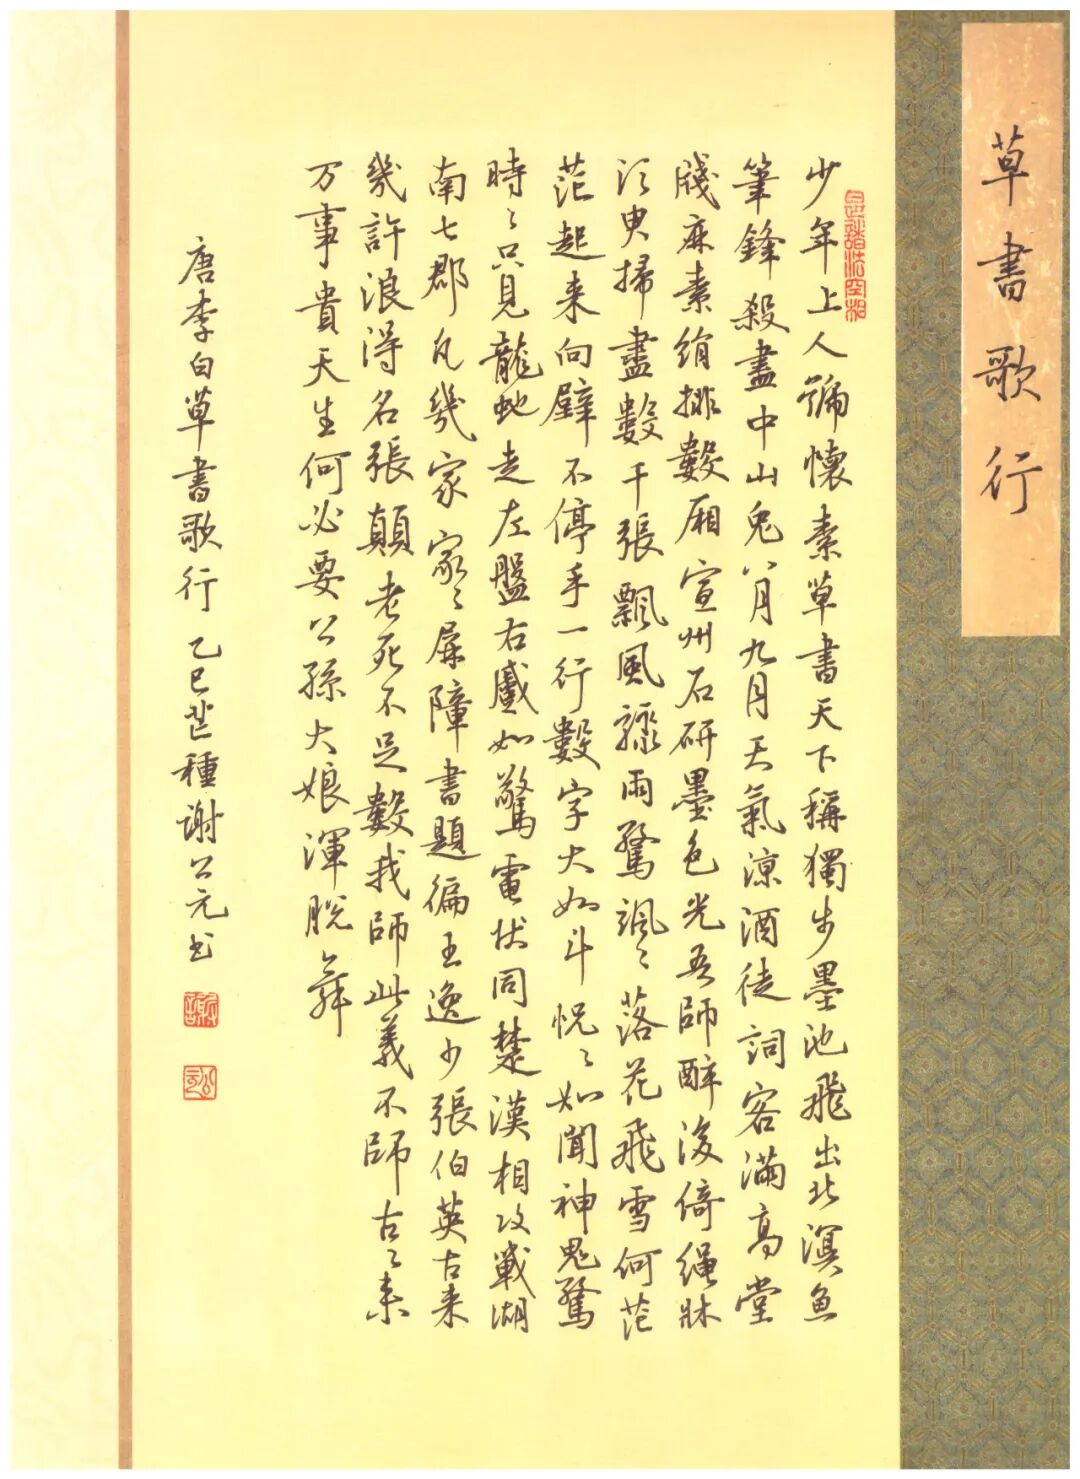 草書歌行
是諸法空相
少年上人號懷素草書天下稱獨步墨池飛出北溟魚
筆鋒殺盡中山兔八月九月天氣涼酒徒詞客滿高堂
牋麻素絹排數廂宣州石研墨色光吾師醉後倚繩牀
須臾掃盡數千張飄風驟雨驚颯〻落花飛雪何茫
茫起来向壁不停手一行數字大如斗怳〻如聞神鬼驚
時〻只見龍蛇走左盤右蹙如驚電狀同楚漢相攻戰湖
南七郡凡幾家家〻屏障書題徧王逸少張伯英古来
幾許浪得名張顛老死不足數我師此義不師古〻来
万事貴天生何必要公孫大娘渾脫舞
唐李白草書歌行 乙巳芒種謝公元书
謝
公元